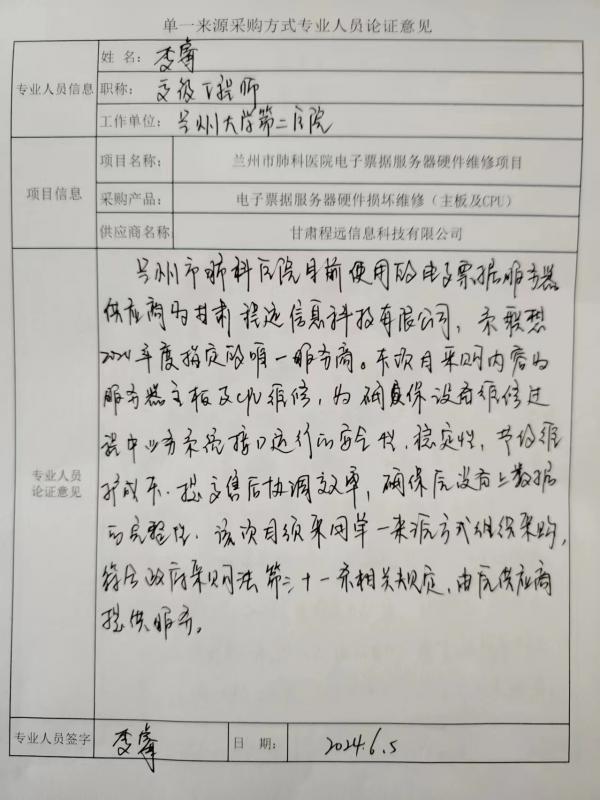 单一来源采购方式专业人员论证意见
专业人员信息
姓 名: 李睿
职称: 高级工程师
工作单位: 兰州大学第二医院
项目信息
项目名称: 兰州市肺科医院电子票据服务器硬件维修项目
采购产品: 电子票据服务器硬件损坏维修（主板及CPU）
供应商名称: 甘肃程远信息科技有限公司
专业人员
论证意见
兰州市肺科医院目前使用的电子票据服务器
供应商为甘肃程远信息科技有限公司，系联想
2024年度指定的唯一服务商。本次目采购内容为
服务器主板及CPU维修，为确保设备维修过
程中业务系统接口运行的安全性、稳定性，节约维
护成本、提高售后协调效率，确保原设备上数据
的完整性，该项目须采用单一来源方式组织采购，
符合政府采购法第三十一条相关规定，由原供应商
提供服务。
专业人员签字 李睿 日 期: 2024.6.5